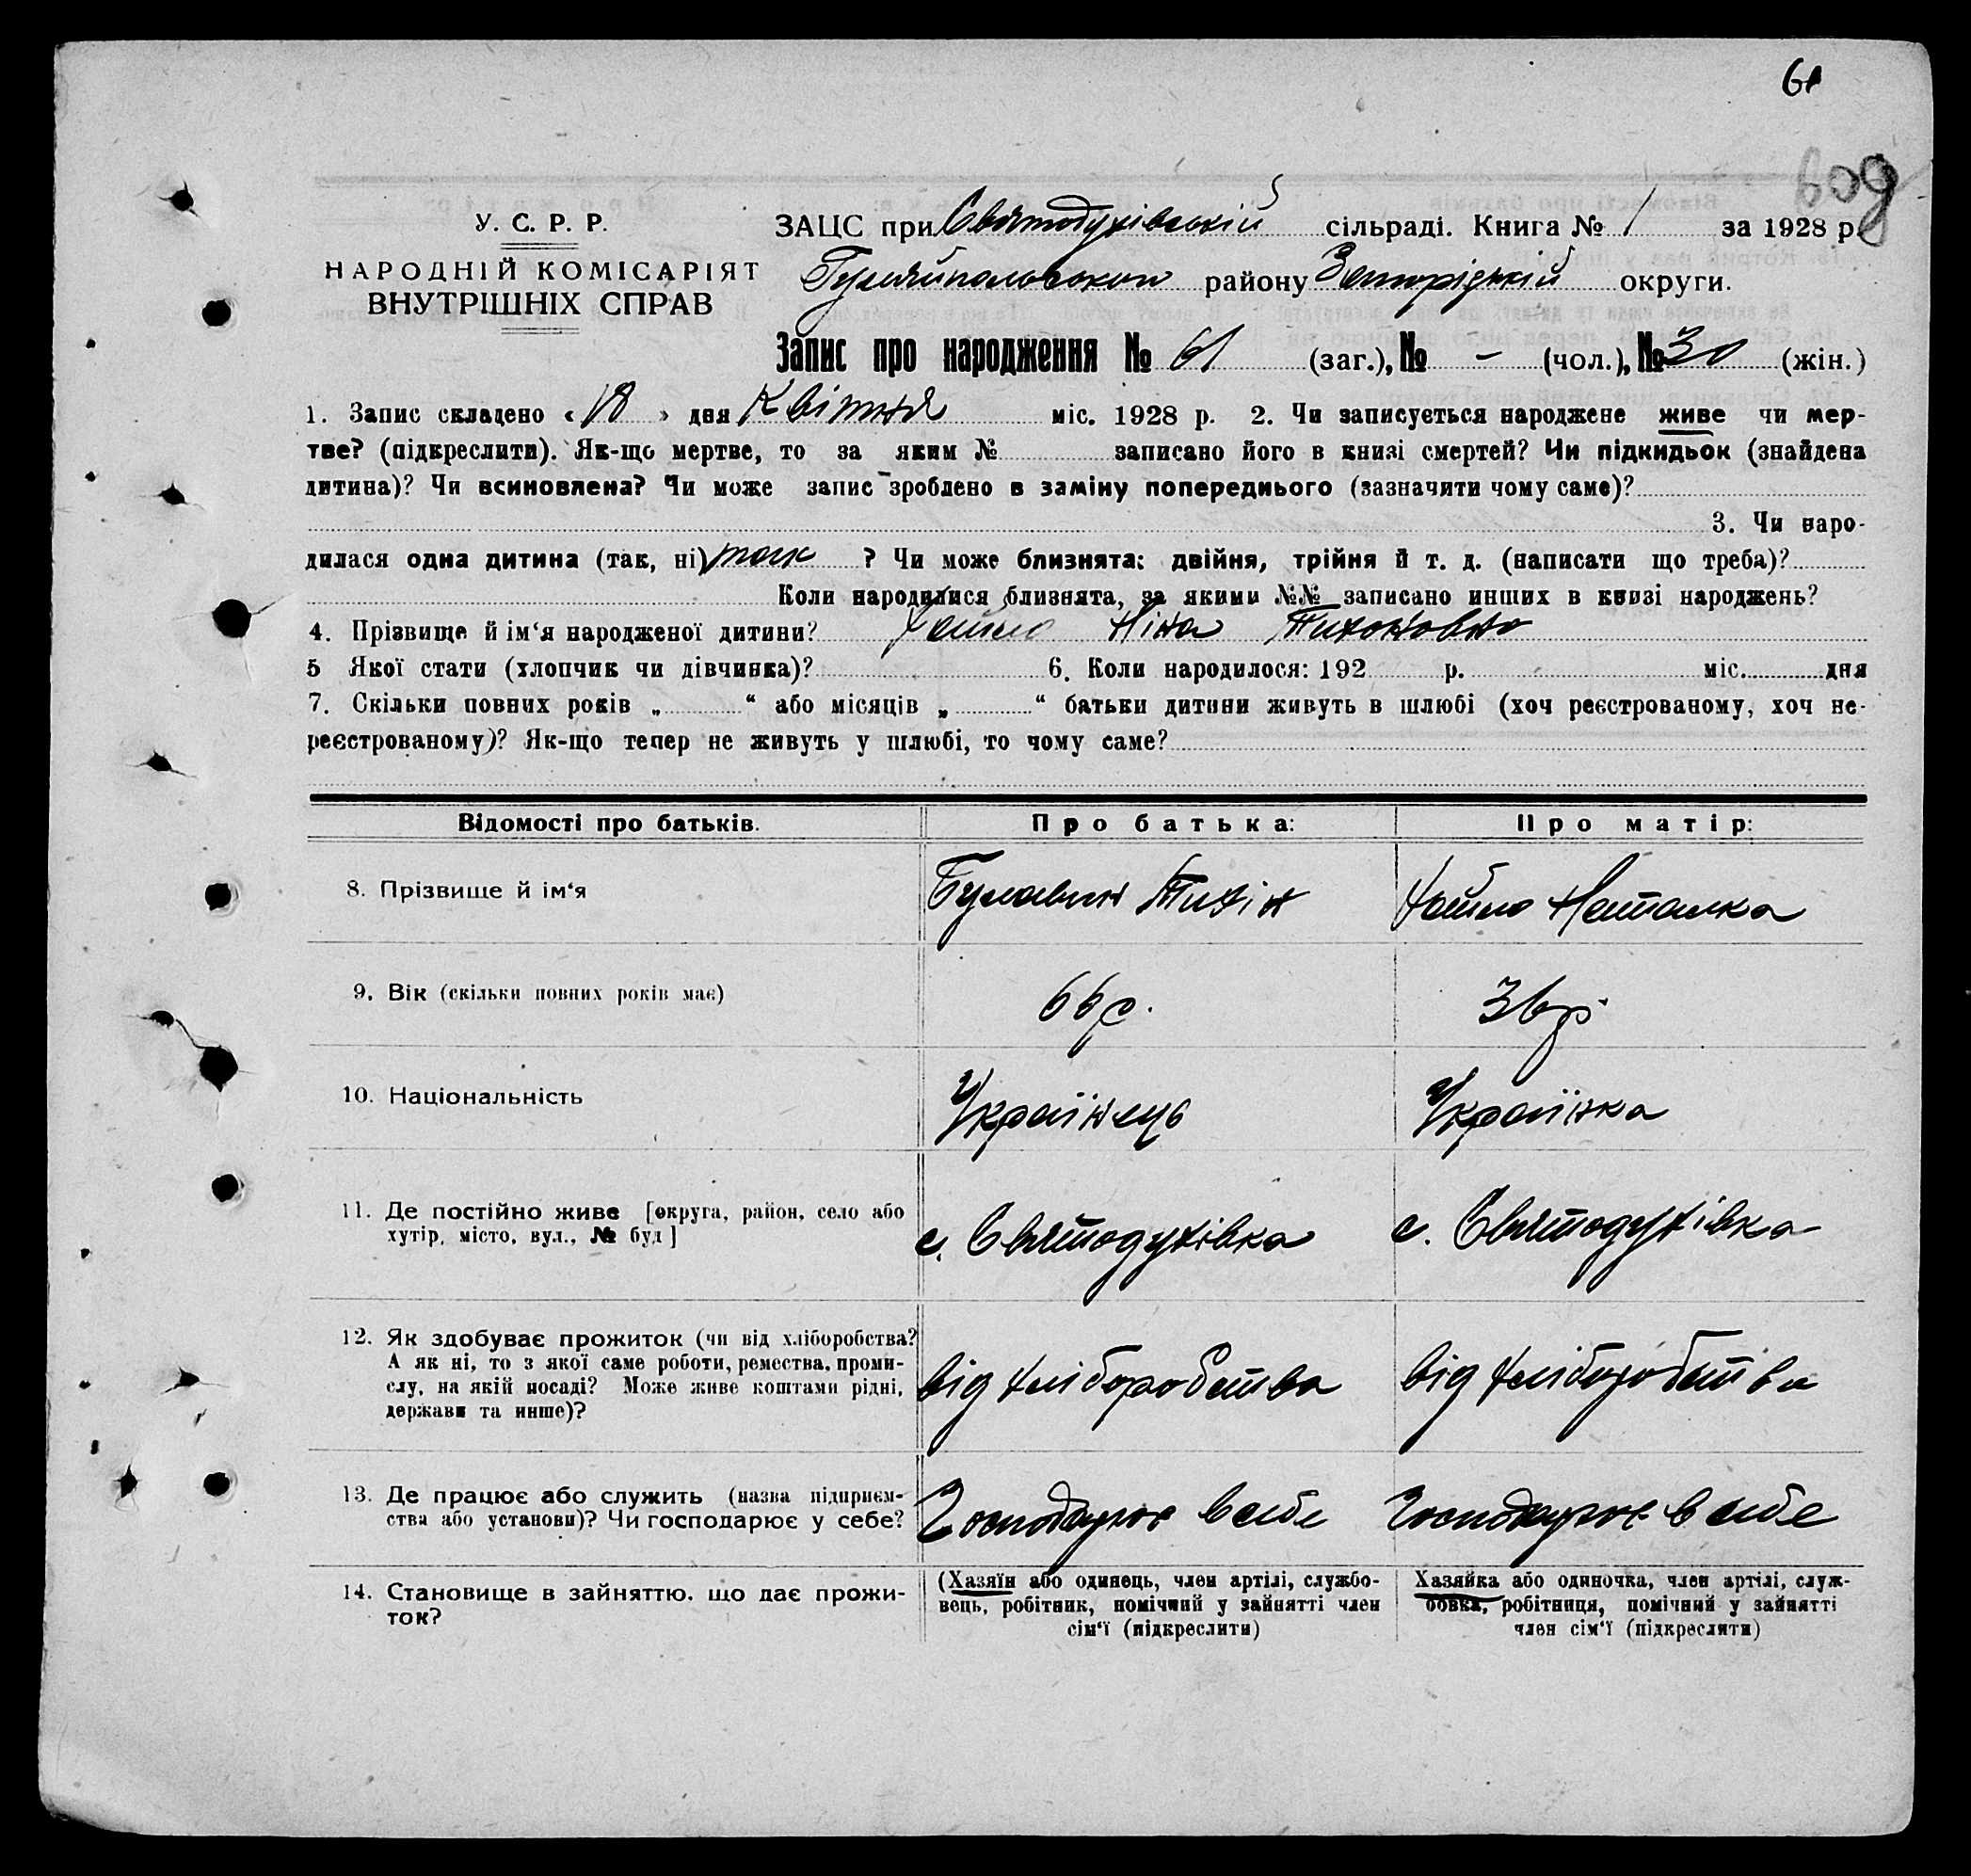 61
609
У. С. Р. Р.
НАРОДНІЙ КОМІСАРІЯТ
ВНУТРІШНІХ СПРАВ
ЗАЦС при Святодухівській сільраді. Книга № 1 за 1928 р.
Гуляйпольського району Запорізькій округи.
Запис про народження № 61 (заг.), № - (чол.), № 30 (жін.)
1. Запис складено « 18 » дня Квітня міс. 1928 р. 2. Чи записується народжене живе чи мер-
тве? (підкреслити). Як-що мертве, то за яким № записано його в книзі смертей? Чи підкидьок (знайдена
дитина)? Чи всиновлена? Чи може запис зроблено в заміну попереднього (зазначити чому саме)?
3. Чи наро-
дилася одна дитина (так, ні) так ? Чи може близнята: двійня, трійня й т. д. (написати що треба)?
Коли народилися близнята, за якими №№ записано инших в книзі народжень?
4. Прізвище й ім‘я народженої дитини? Ніна Тихоновна
5 Якої стати (хлопчик чи дівчинка)? 6. Коли народилося: 192 р. міс. дня
7. Скільки повних років „ “ або місяців „ “ батьки дитини живуть в шлюбі (хоч реєстрованому, хоч не-
реєстрованому)? Як-що тепер не живуть у шлюбі, то чому саме?
Відомості про батьків. Про батька: Про матір:
8. Прізвище й ім‘я Булавин Тихін Наталка
9. Вік (скільки повних років має) 66 р. 36 р.
10. Національність Українець Українка
11. Де постійно живе [округа, район, село або
хутір, місто, вул., № буд] с. Святодухівка с. Святодухівка
12. Як здобуває прожиток (чи від хліборобства?
А як ні, то з якої саме роботи, ремества, проми-
слу, на якій посаді? Може живе коштами рідні,
держави та инше)? від хліборобства від хліборобства
13. Де працює або служить (назва підприєм-
ства або установи)? Чи господарює у себе? Господарює в себе Господарює в себе
14. Становище в зайняттю, що дає прожи-
ток?
(Хазяїн або одинець, член артілі, службо-
вець, робітник, помічний у зайнятті член
сім‘ї (підкреслити)
Хазяйка або одиночка, член артілі, служ-
бовка, робітниця, помічний у зайнятті
член сім‘ї (підкреслити)